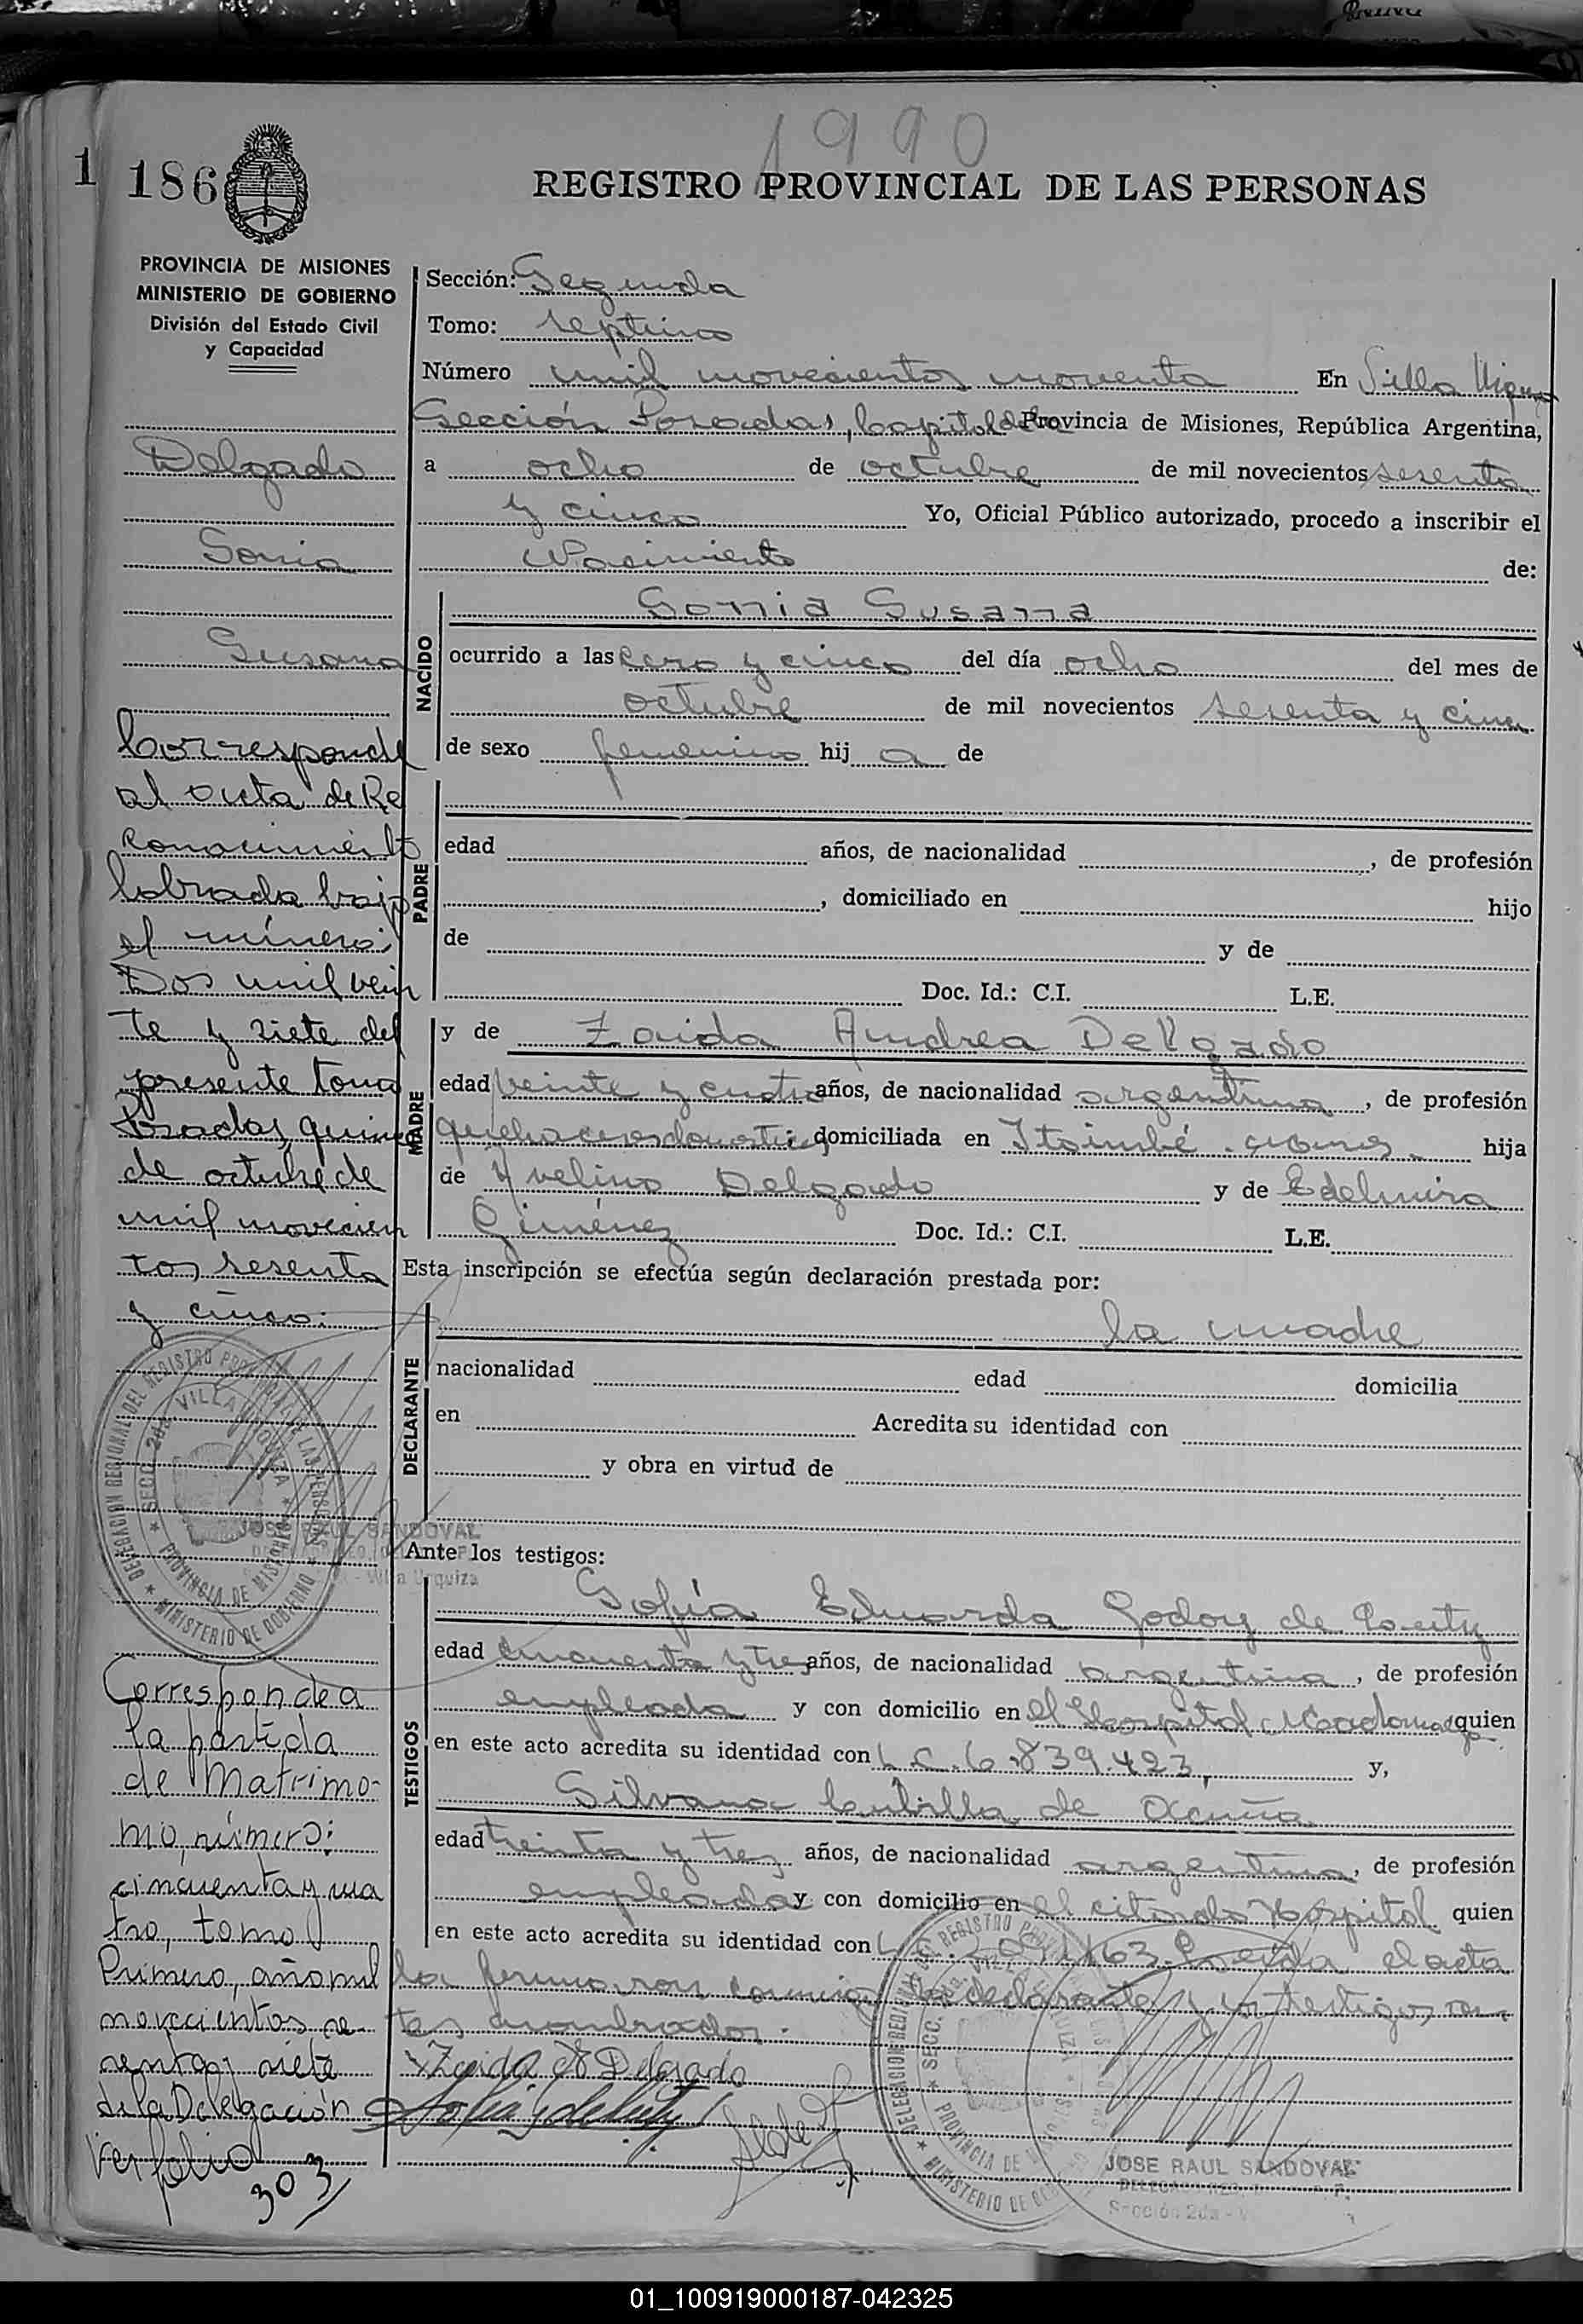 1990
1 186
REGISTRO PROVINCIAL DE LAS PERSONAS
PROVINCIA DE MISIONES
MINISTERIO DE GOBIERNO
División del Estado Civil
y Capacidad
Delgado
Sonia
Susana
Corresponde
al acta de Re
conocimiento
labrada bajo
el número:
Dos mil vein
te y siete del
presente tomo
Posadas, quince
de octubre de
mil novecien
tos sesenta
y cinco:
DELEGACION REGIONAL DEL REGISTRO PROVINCIAL DE LAS PERSONAS
SECC. 2da. VILLA URQUIZA
PROVINCIA DE MISIONES
MINISTERIO DE GOBIERNO
JOSE RAUL SANDOVAL
Villa Urquiza
Corresponde a
la partida
de Matrimo-
nio, número:
cincuenta y cua
tro, tomo
Primero, año mil
novecientos se-
senta y siete
de la Delegación
Ver folio
303
Sección: Segunda
Tomo: septimo
Número mil novecientos noventa En Villa Urquiza
Sección Posadas, Capital de la Provincia de Misiones, República Argentina,
a ocho de octubre de mil novecientos sesenta
y cinco Yo, Oficial Público autorizado, procedo a inscribir el
Nacimiento de:
NACIDO
Sonia Susana
ocurrido a las cero y cinco del día ocho del mes de
octubre de mil novecientos sesenta y cinco
de sexo femenino hij a de
PADRE
edad años, de nacionalidad , de profesión
, domiciliado en hijo
de y de
Doc. Id.: C.I. L.E.
MADRE
y de Zaida Andrea Delgado
edad veinte y cuatro años, de nacionalidad argentina , de profesión
quehaceres domesticos domiciliada en Itaimbé hija
de Avelino Delgado y de Edelmira
Giménez Doc. Id.: C.I. L.E.
Esta inscripción se efectúa según declaración prestada por:
DECLARANTE
la madre
nacionalidad edad domicilia
en Acredita su identidad con
y obra en virtud de
Ante los testigos:
TESTIGOS
Sofía Eduarda Godoy de
edad cincuenta y tres años, de nacionalidad argentina , de profesión
empleada y con domicilio en el Hospital Madariaga quien
en este acto acredita su identidad con L.C. 6.839.423, y,
Silvana Cubilla de Acuña
edad treinta y tres años, de nacionalidad argentina, de profesión
empleada y con domicilio en el citado Hospital quien
en este acto acredita su identidad con Leída el acta
la firmaron conmigo la declarante y los testigos
nombrados.
Zaida A Delgado
DELEGACION REGIONAL DEL REGISTRO
SECC.
PROVINCIA DE
MINISTERIO DE
JOSE RAUL SANDOVAL
Sección 2da
01_100919000187-042325